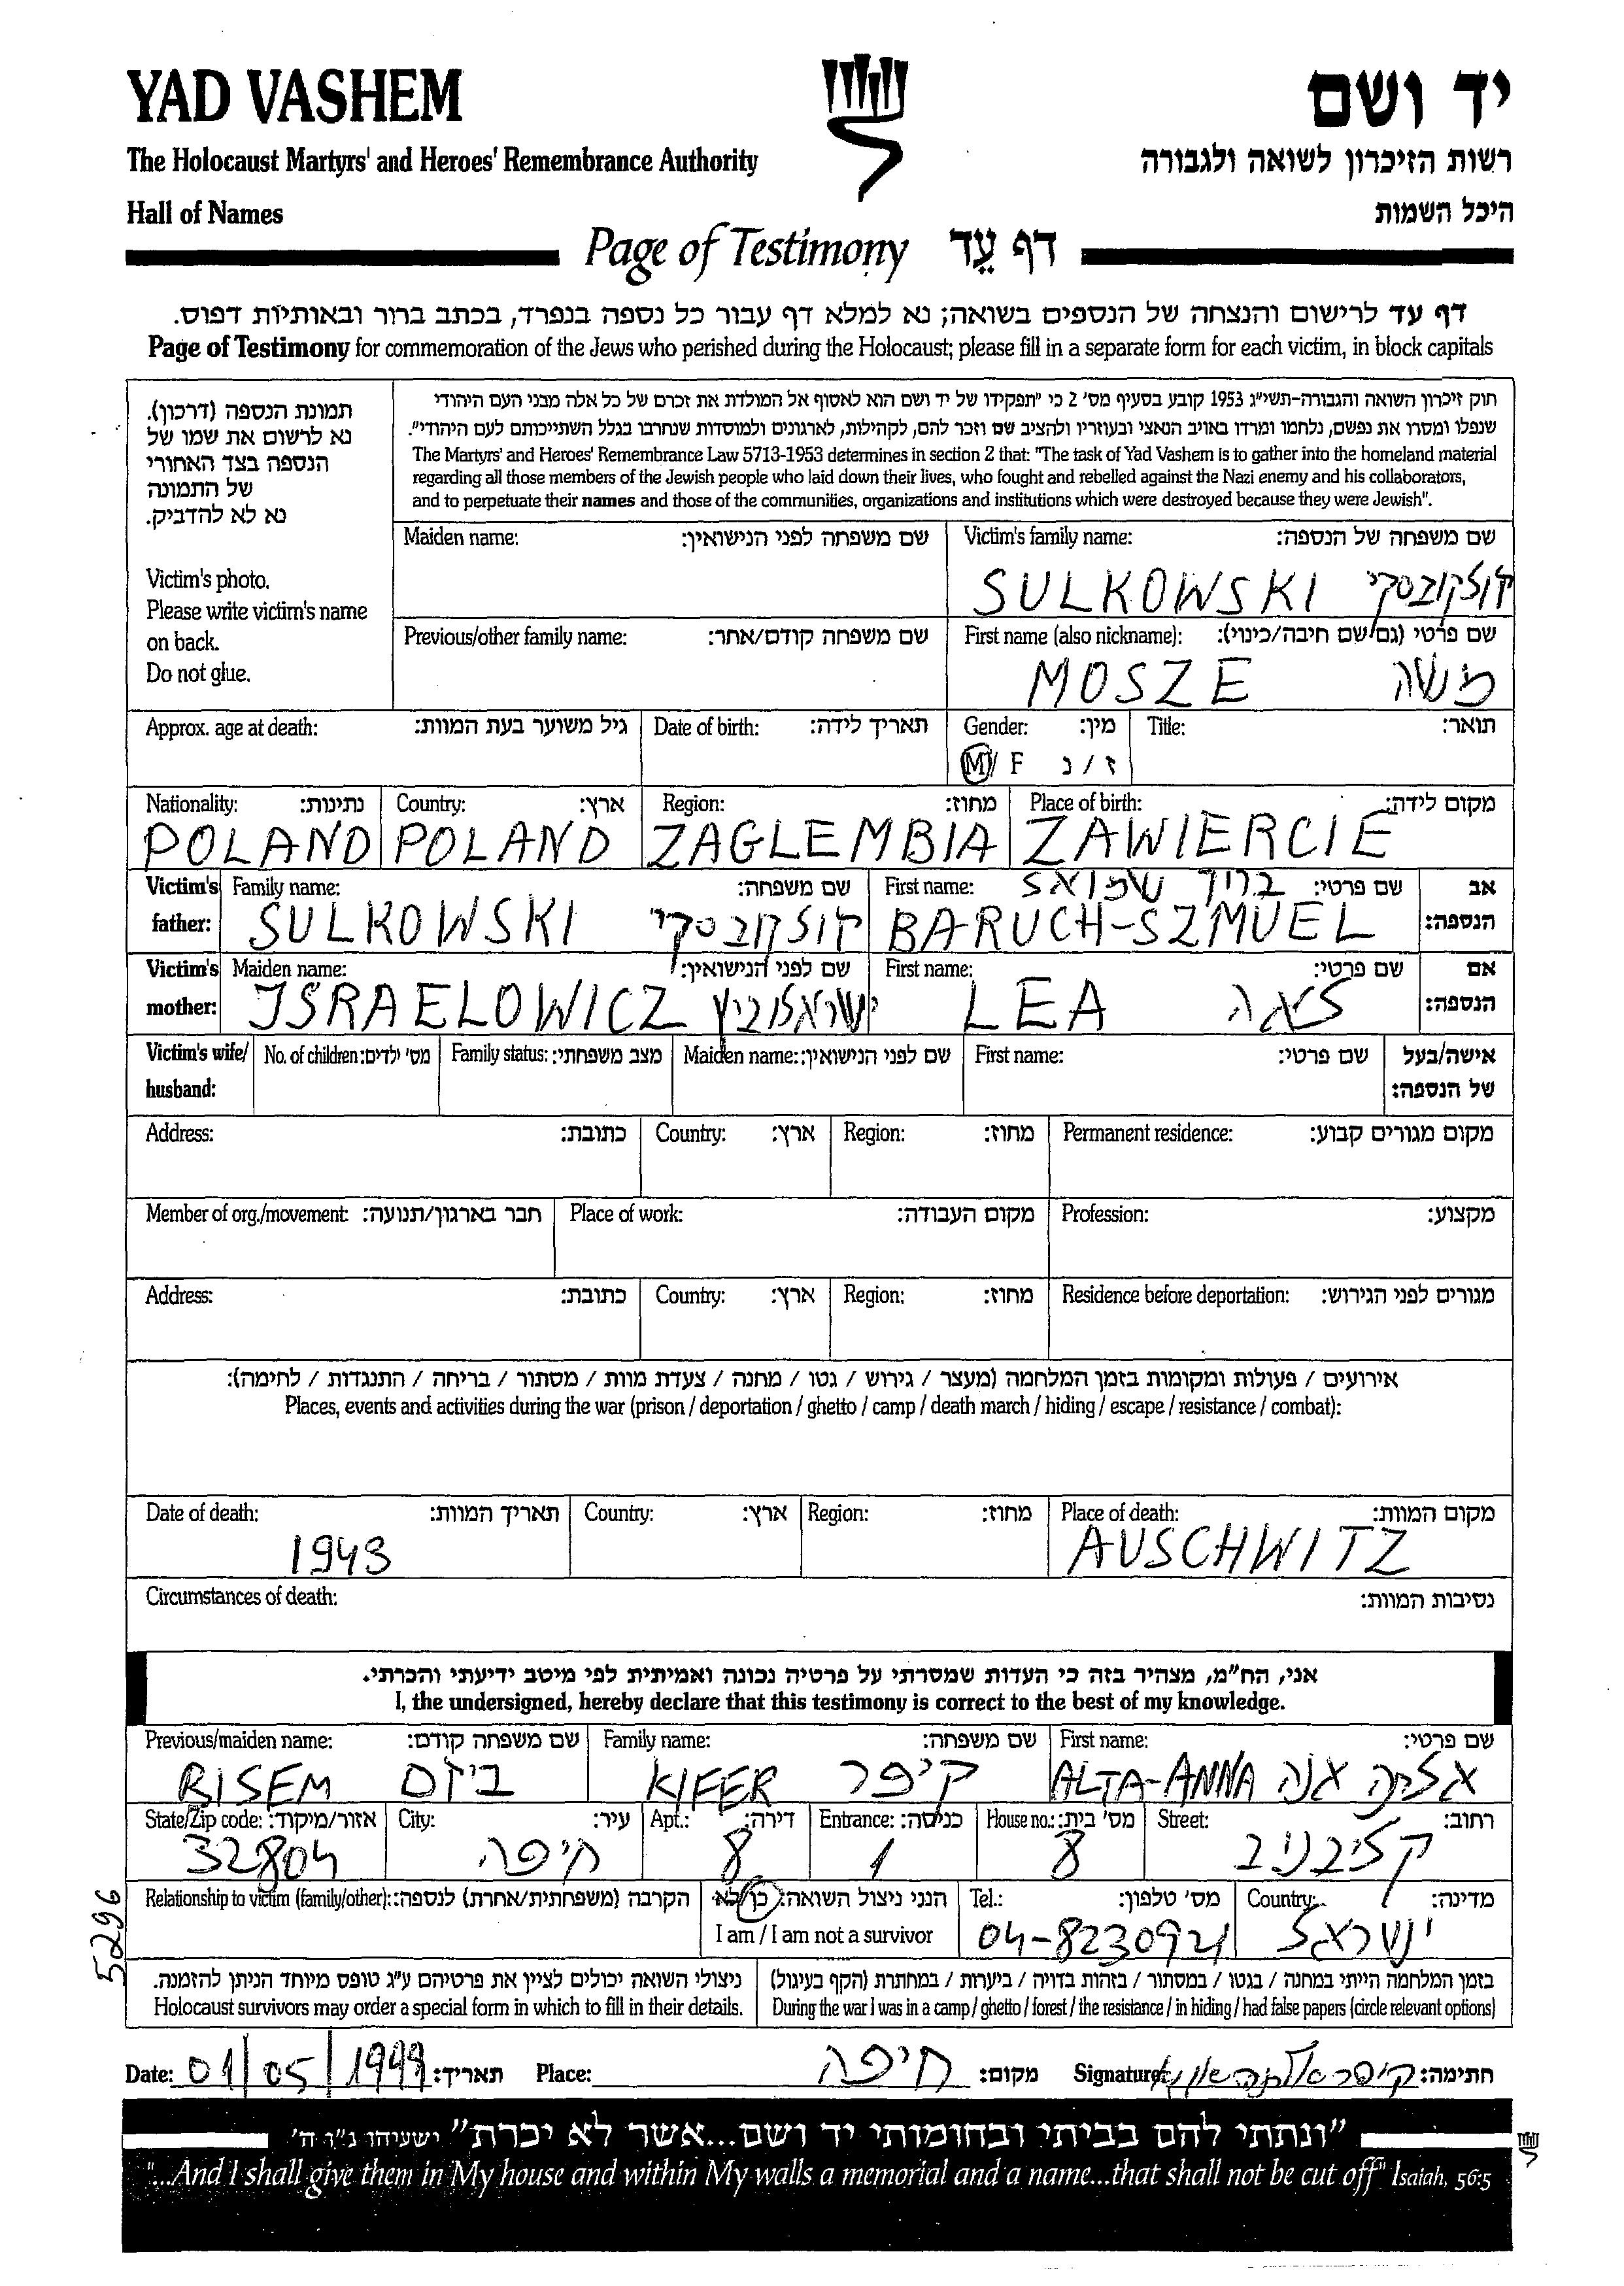 YAD VASHEM
יד ושם
The Holocaust Martyrs' and Heroes' Remembrance Authority
רשות הזיכרון לשואה ולגבורה
Hall of Names
היכל השמות
Page of Testimony דף עֵד
דף עד לרישום והנצחה של הנספים בשואה; נא למלא דף עבור כל נספה בנפרד, בכתב ברור ובאותיות דפוס.
Page of Testimony for commemoration of the Jews who perished during the Holocaust; please fill in a separate form for each victim, in block capitals
תמונת הנספה (דרכון).
נא לרשום את שמו של
הנספה בצד האחורי
של התמונה
נא לא להדביק.
Victim's photo.
Please write victim's name
on back.
Do not glue.
חוק זיכרון השואה והגבורה-תשי"ג 1953 קובע בסעיף מס' 2 כי "תפקידו של יד ושם הוא לאסוף אל המולדת את זכרם של כל אלה מבני העם היהודי
שנפלו ומסרו את נפשם, נלחמו ומרדו באויב הנאצי ובעוזריו ולהציב שם וזכר להם, לקהילות, לארגונים ולמוסדות שנחרבו בגלל השתייכותם לעם היהודי".
The Martyrs' and Heroes' Remembrance Law 5713-1953 determines in section 2 that: "The task of Yad Vashem is to gather into the homeland material
regarding all those members of the Jewish people who laid down their lives, who fought and rebelled against the Nazi enemy and his collaborators,
and to perpetuate their names and those of the communities, organizations and institutions which were destroyed because they were Jewish".
Maiden name: שם משפחה לפני הנישואין:
Victim's family name: שם משפחה של הנספה:
SULKOWSKI
Previous/other family name: שם משפחה קודם/אחר:
First name (also nickname): שם פרטי (גם שם חיבה/כינוי):
MOSZE משה
Approx. age at death: גיל משוער בעת המוות:
Date of birth: תאריך לידה:
Gender: מין:
M / F ז / נ
Title: תואר:
Nationality: נתינות:
POLAND
Country: ארץ:
POLAND
Region: מחוז:
ZAGLEMBIA
Place of birth: מקום לידה:
ZAWIERCIE
Victim's father:
Family name: שם משפחה:
SULKOWSKI
First name: שם פרטי: ברוך שמואל
BARUCH-SZMUEL
אב הנספה:
Victim's mother:
Maiden name: שם לפני הנישואין:
ISRAELOWICZ ישראלוביץ
First name: שם פרטי:
LEA לאה
אם הנספה:
Victim's wife/ husband:
No. of children: מס' ילדים:
Family status: מצב משפחתי:
Maiden name: שם לפני הנישואין:
First name: שם פרטי:
אישה/בעל של הנספה:
Address: כתובת:
Country: ארץ:
Region: מחוז:
Permanent residence: מקום מגורים קבוע:
Member of org./movement: חבר בארגון/תנועה:
Place of work: מקום העבודה:
Profession: מקצוע:
Address: כתובת:
Country: ארץ:
Region: מחוז:
Residence before deportation: מגורים לפני הגירוש:
אירועים / פעולות ומקומות בזמן המלחמה (מעצר / גירוש / גטו / מחנה / צעדת מוות / מסתור / בריחה / התנגדות / לחימה):
Places, events and activities during the war (prison / deportation / ghetto / camp / death march / hiding / escape / resistance / combat):
Date of death: תאריך המוות:
1943
Country: ארץ:
Region: מחוז:
Place of death: מקום המוות:
AUSCHWITZ
Circumstances of death: נסיבות המוות:
אני, הח"מ, מצהיר בזה כי העדות שמסרתי על פרטיה נכונה ואמיתית לפי מיטב ידיעתי והכרתי.
I, the undersigned, hereby declare that this testimony is correct to the best of my knowledge.
Previous/maiden name: שם משפחה קודם:
RISEM
Family name: שם משפחה:
KIFER קיפר
First name: שם פרטי:
ALTA-ANNA אלתה אנה
State/Zip code: אזור/מיקוד:
32804
City: עיר:
חיפה
Apt.: דירה:
8
Entrance: כניסה:
1
House no.: מס' בית:
8
Street: רחוב:
Relationship to victim (family/other): הקרבה (משפחתית/אחרת) לנספה:
הנני ניצול השואה: כן/לא
I am / I am not a survivor
Tel.: מס' טלפון:
04-8230921
Country: מדינה:
ישראל
5296
ניצולי השואה יכולים לציין את פרטיהם ע"ג טופס מיוחד הניתן להזמנה.
Holocaust survivors may order a special form in which to fill in their details.
בזמן המלחמה הייתי במחנה / בגטו / במסתור / בזהות בדויה / ביערות / במחתרת (הקף בעיגול)
During the war I was in a camp / ghetto / forest / the resistance / in hiding / had false papers (circle relevant options)
Date: 01/05/1999 תאריך:
Place: חיפה מקום:
Signature: קיפר אלתה חתימה:
"ונתתי להם בביתי ובחומותי יד ושם...אשר לא יכרת" ישעיהו נ"ו ה'
"...And I shall give them in My house and within My walls a memorial and a name...that shall not be cut off" Isaiah, 56:5